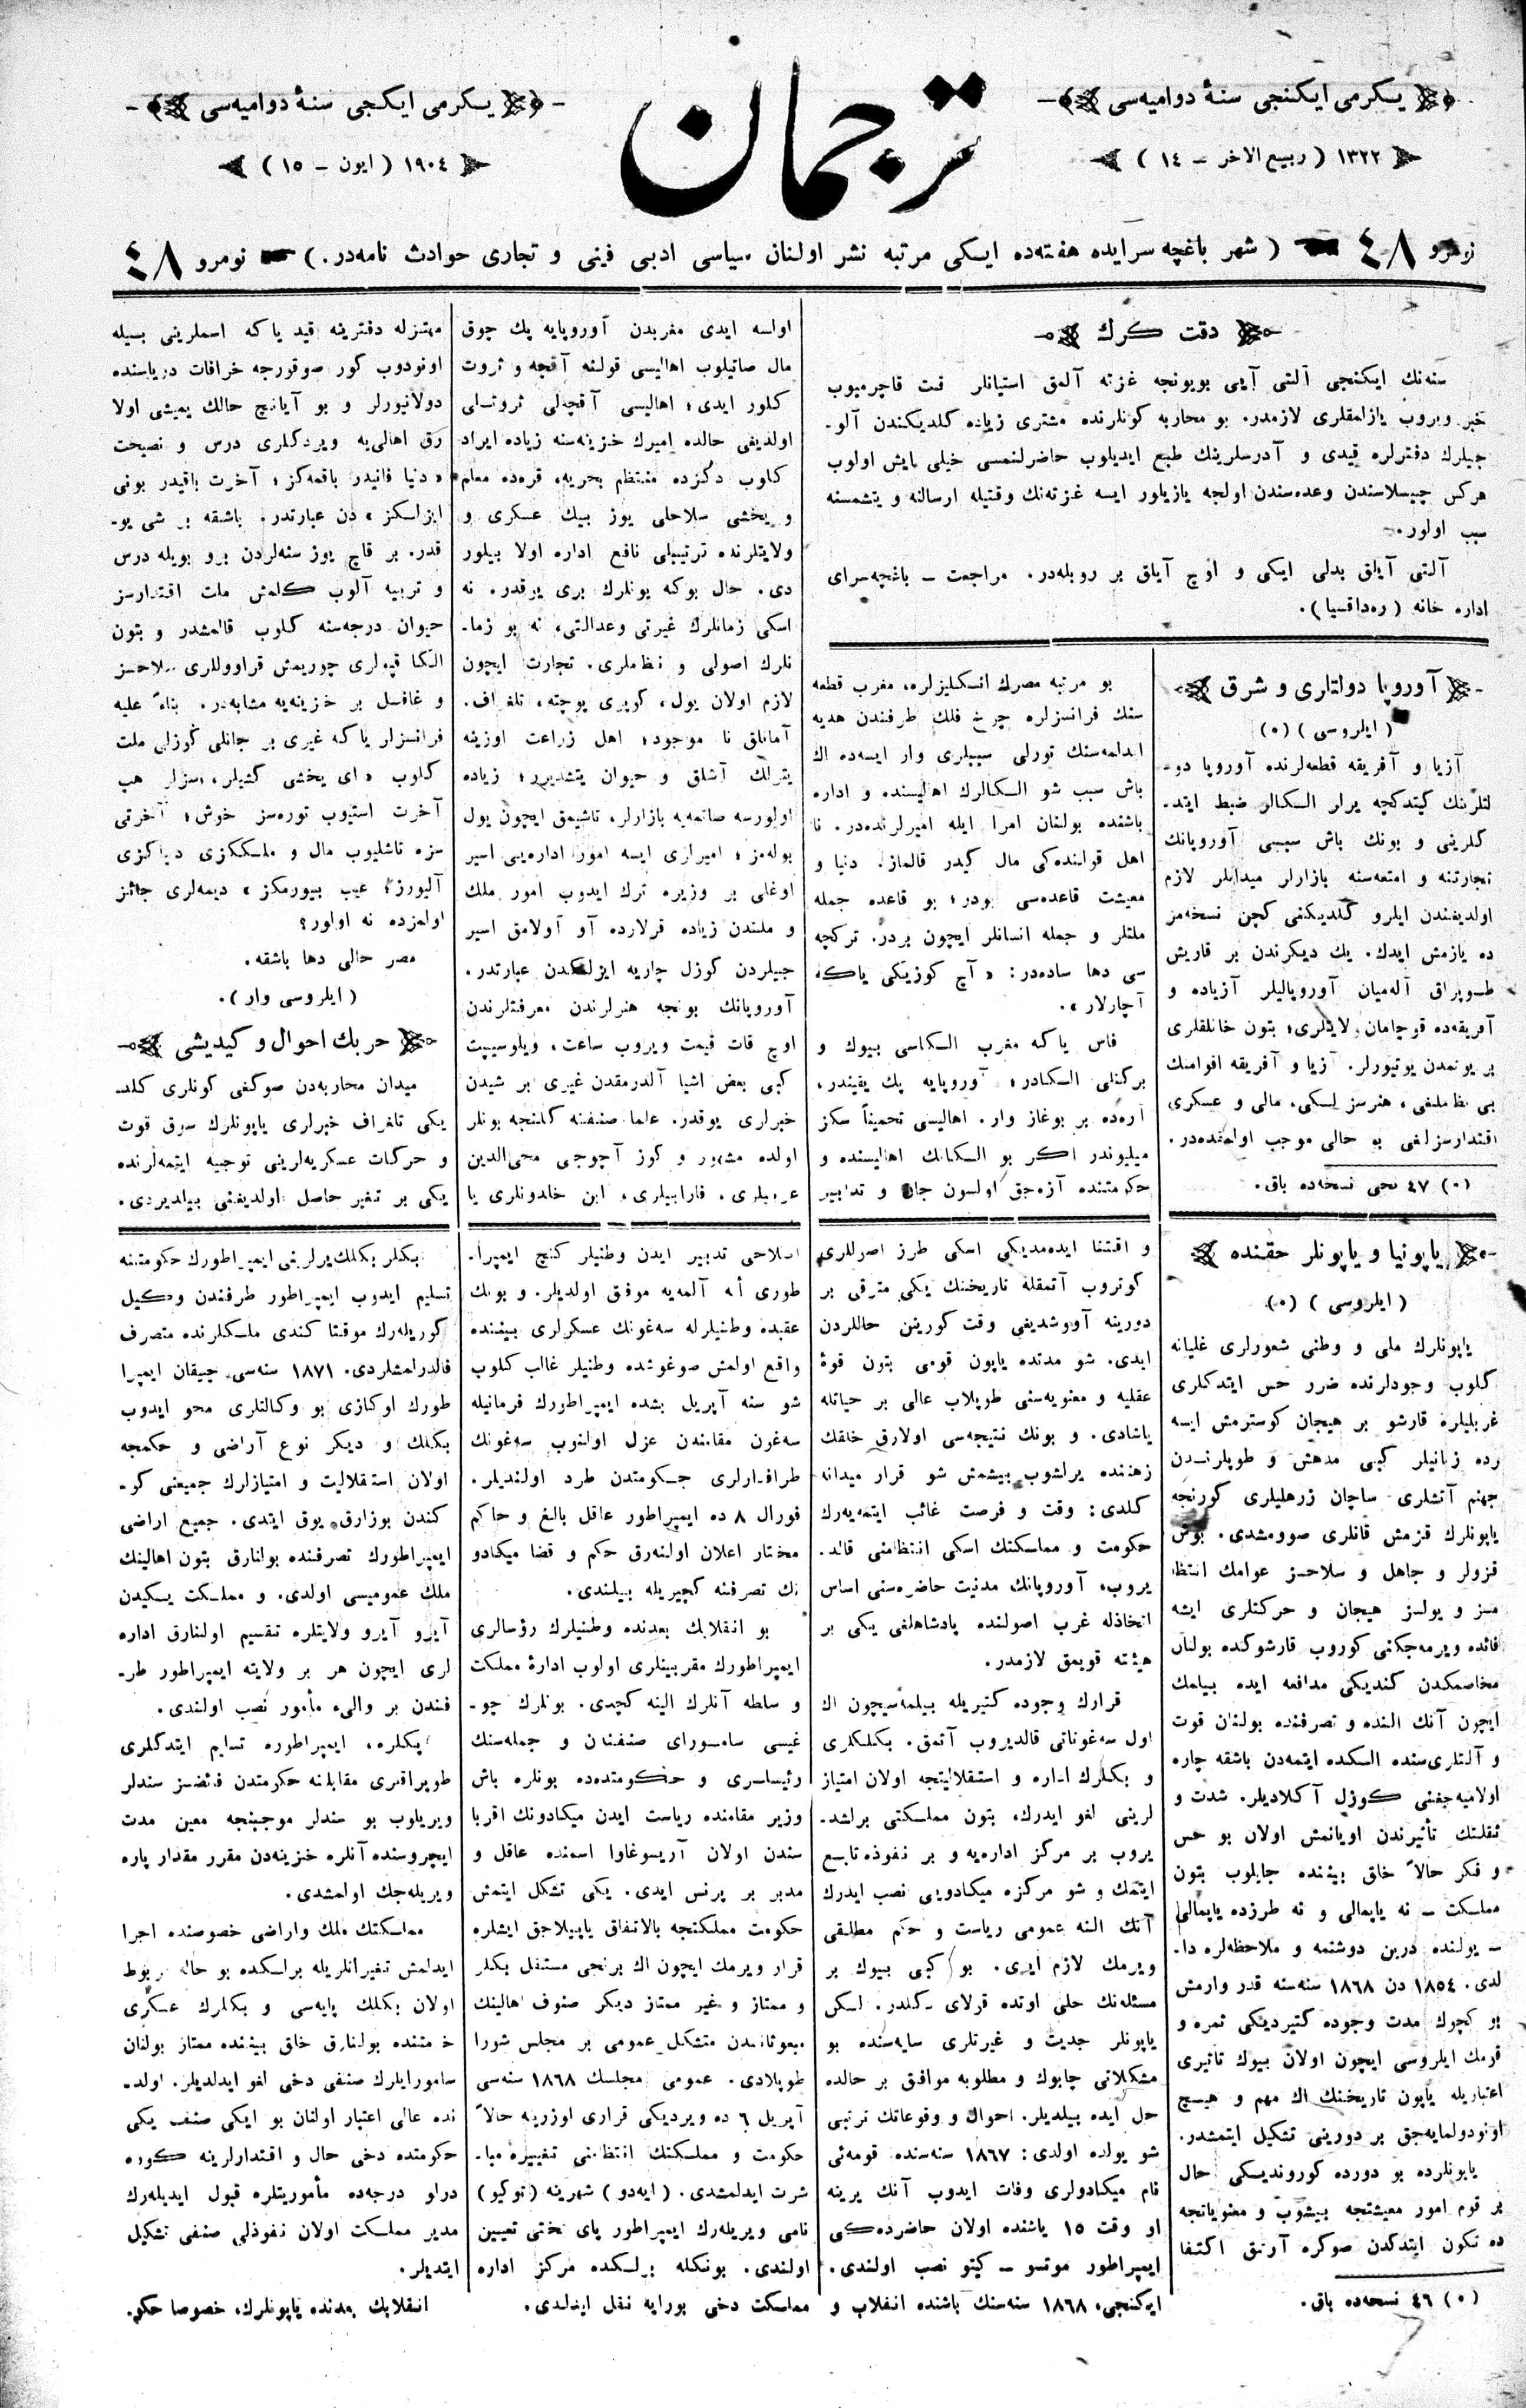 یكرمی ایكنجی سنۀ دوامیه‌سی
١٣٢٢ ( ربیع الاخر – ١٤ )
ترجمان
یكرمی ایكنجی سنۀ دوامیه‌سی
١٩٠٤ ( ایون – ١٥ )
نومرو ٤٨ ( شهر باغچه سرایده هفته‌ده ایكی مرتبه نشر اولنان سیاسی ادبی فینی و تجاری حوادث نامه‌در. ) نومرو ٤٨
دقت كرك
سنه‌نك ایكنجی آلتی آیی بویونجه غزته آلمق استیانلر فت قاچرمیوب
خبر ویروب یازلمقلری لازمدر. بو محاربه كونلرنده مشتری زیاده كلدیكندن آلو-
جیلرك دفترلره قیدی و آدرسلرینك طبع ایدیلوب حاضرلنمسی خیلی ایش اولوب
هركس چیسلاسندن وعده‌سندن اولجه یازیلور ایسه غزته‌نك وقتیله ارسالنه و یتشمسنه
سبب اولور.
آلتی آیلق بدلی ایكی و اوچ آیلق بر روبله‌در. مراجعت – باغچه‌سرای
اداره خانه ( ره‌داقسیا ).
آوروپا دولتلری و شرق
( ایلروسی ) (٠)
آزیا و آفریقه قطعه‌لرنده آوروپا دو-
لتلرینك كیتدكچه یرلر الكالر ضبط ایتد-
كلرینی و بونك باش سببی آوروپانك
تجارتنه و امتعه‌سنه بازارلر میدانلر لازم
اولدیغندن ایلرو كلدیكنی كچن نسخه‌مز
ده یازمش ایدك. یك دیكرندن بر قاریش
طوپراق آله‌میان آوروپالیلر آزیاده و
آفریقه‌ده قوجامان ولایتلری؛ بتون خانلقلری
بر یوتمدن یوتیورلر. آزیا و آفریقه اقوامنك
بی نظاملغی، هنرسزلیكی، مالی و عسكری
اقتدارسزلغی بو حالی موجب اولمقده‌در.
(٠) ٤٧ نجی نسخه‌ده باق.
بو مرتبه مصرك انكلیزلره، مغرب قطعه
سنك فرانسزلره چرخ فلك طرفندن هدیه
ایدلمه‌سنك تورلی سببلری وار ایسه‌ده اك
باش سبب شو الكالرك اهالیسنده و اداره
باشنده بولنان امرا ایله امیرلرنده‌در. نا
اهل قولنده‌كی مال كیدر قالماز. دنیا و
معیشت قاعده‌سی بودر؛ بو قاعده جمله
ملتلر و جمله انسانلر ایچون بردر. تركچه
سی دها ساده‌در: « آچ كوزیكی یاكه
آچارلار ».
فاس یاكه مغرب الكاسی بیوك و
بركتلی الكادر؛ آوروپایه پك یقیندر،
آره‌ده بر بوغاز وار. اهالیسی تخمیناً سكز
میلیوندر اكر بو الكانك اهالیسنده و
حكومتنده آزه‌جق اولسون جان و تدابیر
اولسه ایدی مغربدن آوروپایه پك چوق
مال صاتیلوب اهالیسی قولنه آقچه و ثروت
كلور ایدی؛ اهالیسی آقچه‌لی ثروتلی
اولدیغی حالده امیرك خزینه‌سنه زیاده ایراد
كلوب دكزده منتظم بحریه، قره‌ده معلم
و یخشی سلاحلی یوز بیك عسكری و
ولایتلرنده ترتیبلی نافع اداره اولا بیلور
دی. حال بوكه بونلرك بری یوقدر. نه
اسكی زمانلرك غیرتی و عدالتی، نه بو زما-
نلرك اصولی و نظاملری. تجارت ایچون
لازم اولان یول، كوپری پوچته، تلغراف.
آمانلق نا موجود؛ اهل زراعت اوزینه
یترلك آشلق و حیوان یتشدیرر؛ زیاده
اولورسه صاتمه‌یه بازارلر، تاشیمق ایچون یول
بوله‌مز؛ امیرلری ایسه امور اداره‌یی اسیر
اوغلی بر وزیره ترك ایدوب امور ملك
و ملتدن زیاده قرلارده آو آولامق اسیر
جیلردن كوزل جاریه ایزلمكدن عبارتدر.
آوروپانك بونجه هنرلرندن معرفتلرندن
اوچ قات قیمت ویروب ساعت، ویلوسیپت
كبی بعض اشیا آلدرمقدن غیری بر شیدن
خبرلری یوقدر. علما صنفنه كلنجه بونلر
اولده مشهور و كوز آچوجی محی‌الدین
عربیلری، فارابیلری، ابن خلدونلری یا
مهتزله دفترینه قید یاكه اسملرینی بیله
اونودوب كور صوقورجه خرافات دریاسنده
دولانیورلر و بو آیانچ حالك یمیشی اولا
رق اهالی‌یه ویردكلری درس و نصیحت
« دنیا فانیدر باقمه‌كز؛ آخرت باقیدر بونی
ایزلسكز » دن عبارتدر. باشقه بر شی یو-
قدر. بر قاچ یوز سنه‌لردن برو بویله درس
و تربیه آلوب كلمش ملت اقتدارسز
حیوان درجه‌سنه كلوب قالمشدر و بتون
الكا قپولری چوریمش قراووللری سلاحسز
و غافل بر خزینه‌یه مشابه‌در. بناءً علیه
فرانسزلر یاكه غیری بر جانلی كوزلی ملت
كلوب « ای یخشی كشیلر، سزلر هپ
آخرت استیوب توره‌سز خوش؛ آخرتی
سزه تاشلیوب مال و ملككزی دنیاكزی
آلیورز؛ عیب بیورمكز » دیمه‌لری جائز
اولمزده نه اولور؟
مصر حالی دها باشقه.
( ایلروسی وار ).
حربك احوال و كیدیشی
میدان محاربه‌دن صوكغی كونلری كلد-
یكی تلغراف خبرلری یاپونلرك سوق قوت
و حركات عسكریه‌لرینی توجیه ایتمه‌لرنده
یكی بر تغیر حاصل اولدیغنی بیلدیردی.
یاپونیا و یاپونلر حقنده
( ایلروسی ) (٠)
یاپونلرك ملی و وطنی شعورلری غلیانه
كلوب وجودلرنده ضرر حس ایتدكلری
غربلیلره قارشو بر هیجان كوسترمش ایسه
رده زبانیلر كبی مدهش و طوپلرندن
جهنم آتشلری ساچان زرهلیلری كورنجه
یاپونلرك قزمش قانلری صوومشدی. بوش
قزولر و جاهل و سلاحسز عوامك انتظا
مسز و یولسز هیجان و حركتلری ایشه
فائده ویرمه‌جكنی كوروب قارشوكده بولنان
مخاصمكدن كندیكی مدافعه ایده بیلمك
ایچون آنك النده و تصرفنده بولنان قوت
و آلتلری‌سنده الكده ایتمه‌دن باشقه چاره
اولامیه‌جغنی كوزل آكلادیلر. شدت و
ثقلتك تأثیرندن اویانمش اولان بو حس
و فكر حالاً خلق بیننده جایلوب بتون
مملكت – نه یاپمالی و نه طرزده یاپمالی
– یولنده درین دوشنمه و ملاحظه‌لره دا-
لدی. ١٨٥٤ دن ١٨٦٨ سنه‌سنه قدر وارمش
بو كچوك مدت وجوده كتیردیكی ثمره و
قومك ایلروسی ایچون اولان بیوك تاثیری
اعتباریله یاپون تاریخنك اك مهم و هیچ
اونودولمایه‌جق بر دورینی تشكیل ایتمشدر.
یاپونلرده بو دورده كوروندیكی حال
بر قوم امور معیشتجه بیشوب و معنویاتجه
ده تكون ایتدكدن صوكره آرتق اكتفا
(٠) ٤٦ نسخه‌ده باق.
و اقتفا ایده‌مدیكی اسكی طرز اصوللری
كوتروب آتمقله تاریخنك یكی مترقی بر
دورینه آووشدیغی وقت كورینن حاللردن
ایدی. شو مدتده یاپون قومی بتون قوۀ
عقلیه و معنویه‌سنی طوپلاب عالی بر حیاتله
یاشادی. و بونك نتیجه‌سی اولارق خلقك
زهننده یرلشوب بیشمش شو قرار میدانه
كلدی: وقت و فرصت غائب ایتمه‌یه‌رك
حكومت و مملكتك اسكی انتظامنی قالد.
یروب، آوروپانك مدنیت حاضره‌سنی اساس
اتخاذله غرب اصولنده پادشاهلغی یكی بر
هیئته قویمق لازمدر.
قرارك وجوده كتیریله بیلمه‌سیچون اك
اول سه‌غوناتی قالدیروب آتمق. بكلكلری
و بكلرك اداره و استقلالیتجه اولان امتیاز
لرینی لغو ایدرك، بتون مملكتی برلشد-
یروب بر مركز اداره‌یه و بر نفوذه تابع
ایتمك و شو مركزه میكادویی نصب ایدرك
آنك الینه عمومی ریاست و حكم مطلقی
ویرمك لازم ایدی. بو كبی بیوك بر
مسئله‌نك حلی اوته‌ده قولای دكلدر. لكن
یاپونلر جدیت و غیرتلری سایه‌سنده بو
مشكلاتی چابوك و مطلوبه موافق بر حالده
حل ایده بیلدیلر. احوال و وقوعاتك ترتبی
شو یولده اولدی: ١٨٦٧ سنه‌سنده قومه‌ئی
نام میكادولری وفات ایدوب آنك یرینه
او وقت ١٥ یاشنده اولان حاضرده‌كی
ایمپراطور موتسو – كیتو نصب اولندی.
ایكنجی، ١٨٦٨ سنه‌سنك باشنده انقلاب و
اصلاحی تدبیر ایدن وطنیلر كنج ایمپرا-
طوری اله آلمه‌یه موفق اولدیلر. و بونك
عقبده وطنیلرله سه‌غونك عسكرلری بیننده
واقع اولمش صوغوشده وطنیلر غالب كلوب
شو سنه آپریل بشده ایمپراطورك فرمانیله
سه‌غون مقامندن عزل اولنوب سه‌غونك
طرافدارلری حكومتدن طرد اولندیلر.
فورال ٨ ده ایمپراطور عاقل بالغ و حاكم
مختار اعلان اولنه‌رق حكم و قضا میكادو
نك تصرفنه كچیریله بیلندی.
بو انقلابك بعدنده وطنیلرك رؤسالری
ایمپراطورك مقربینلری اولوب ادارۀ مملكت
و سلطه آنلرك الینه كچدی. بونلرك چو-
غیسی سامورای صنفندن و جمله‌سنك
رئیسلری و حكومتده‌ده بونلره باش
وزیر مقامنده ریاست ایدن میكادونك اقربا
سندن اولان آریسوغاوا اسمنده عاقل و
مدبر بر پرنس ایدی. یكی تشكل ایتمش
حكومت مملكتجه بالاتفاق یاپیلاجق ایشلره
قرار ویرمك ایچون اك برنجی مستقل بكلر
و ممتاز و غیر ممتاز دیكر صنوف اهالینك
مبعوثاندن متشكل عمومی بر مجلس شورا
طوپلادی. عمومی مجلسك ١٨٦٨ سنه‌سی
آپریل ٦ ده ویردیكی قراری اوزرینه حالاً
حكومت و مملكتك انتظامنی تغییره مبا-
شرت ایدلمشدی. (ایه‌دو) شهرینه (توكیو)
نامی ویریله‌رك ایمپراطور پای تختی تعیین
اولندی. بونكله برلكده مركز اداره
مملكت دخی بورایه نقل ایدلدی.
بكلر بكلك یرلرینی ایمپراطورك حكومتنه
تسلیم ایدوب ایمپراطور طرفندن وكیل
كوریله‌رك موقتا كندی ملكلرنده متصرف
قالدرلمشلردی. ١٨٧١ سنه‌سی چیقان ایمپرا
طورك اوكازی بو وكالتلری محو ایدوب
بكلك و دیكر نوع آراضی و حكمجه
اولان استقلالیت و امتیازلرك جمیعنی كو-
كندن بوزارق یوق ایتدی. جمیع اراضی
ایمپراطورك تصرفنده بولنارق بتون اهالینك
ملك عمومیسی اولدی. و مملكت یكیدن
آیرو آیرو ولایتلره تقسیم اولنارق اداره
لری ایچون هر بر ولایته ایمپراطور طر-
فندن بر والیء مأمور نصب اولندی.
بكلره، ایمپراطوره تسلیم ایتدكلری
طوپراقلری مقابلنه حكومتدن فائضسز سندلر
ویریلوب بو سندلر موجبنجه معین مدت
ایچروسنده آنلره خزینه‌دن مقرر مقدار پاره
ویریله‌جك اولمشدی.
مملكتك ملك واراضی خصوصنده اجرا
ایدلمش تغیراتلریله برلكده بو حاله مربوط
اولان بكلك پایه‌سی و بكلرك عسكری
خدمتنده بولنارق خلق بیننده ممتاز بولنان
سامورایلرك صنفی دخی لغو ایدلدیلر. اولد-
نده عالی اعتبار اولنان بو ایكی صنف یكی
حكومتده دخی حال و اقتدارلرینه كوره
درلو درجه‌ده مأموریتلره قبول ایدیله‌رك
مدیر مملكت اولان نفوذلی صنفی تشكیل
ایتدیلر.
انقلابك بعدنده یاپونلرك، خصوصا حكو.